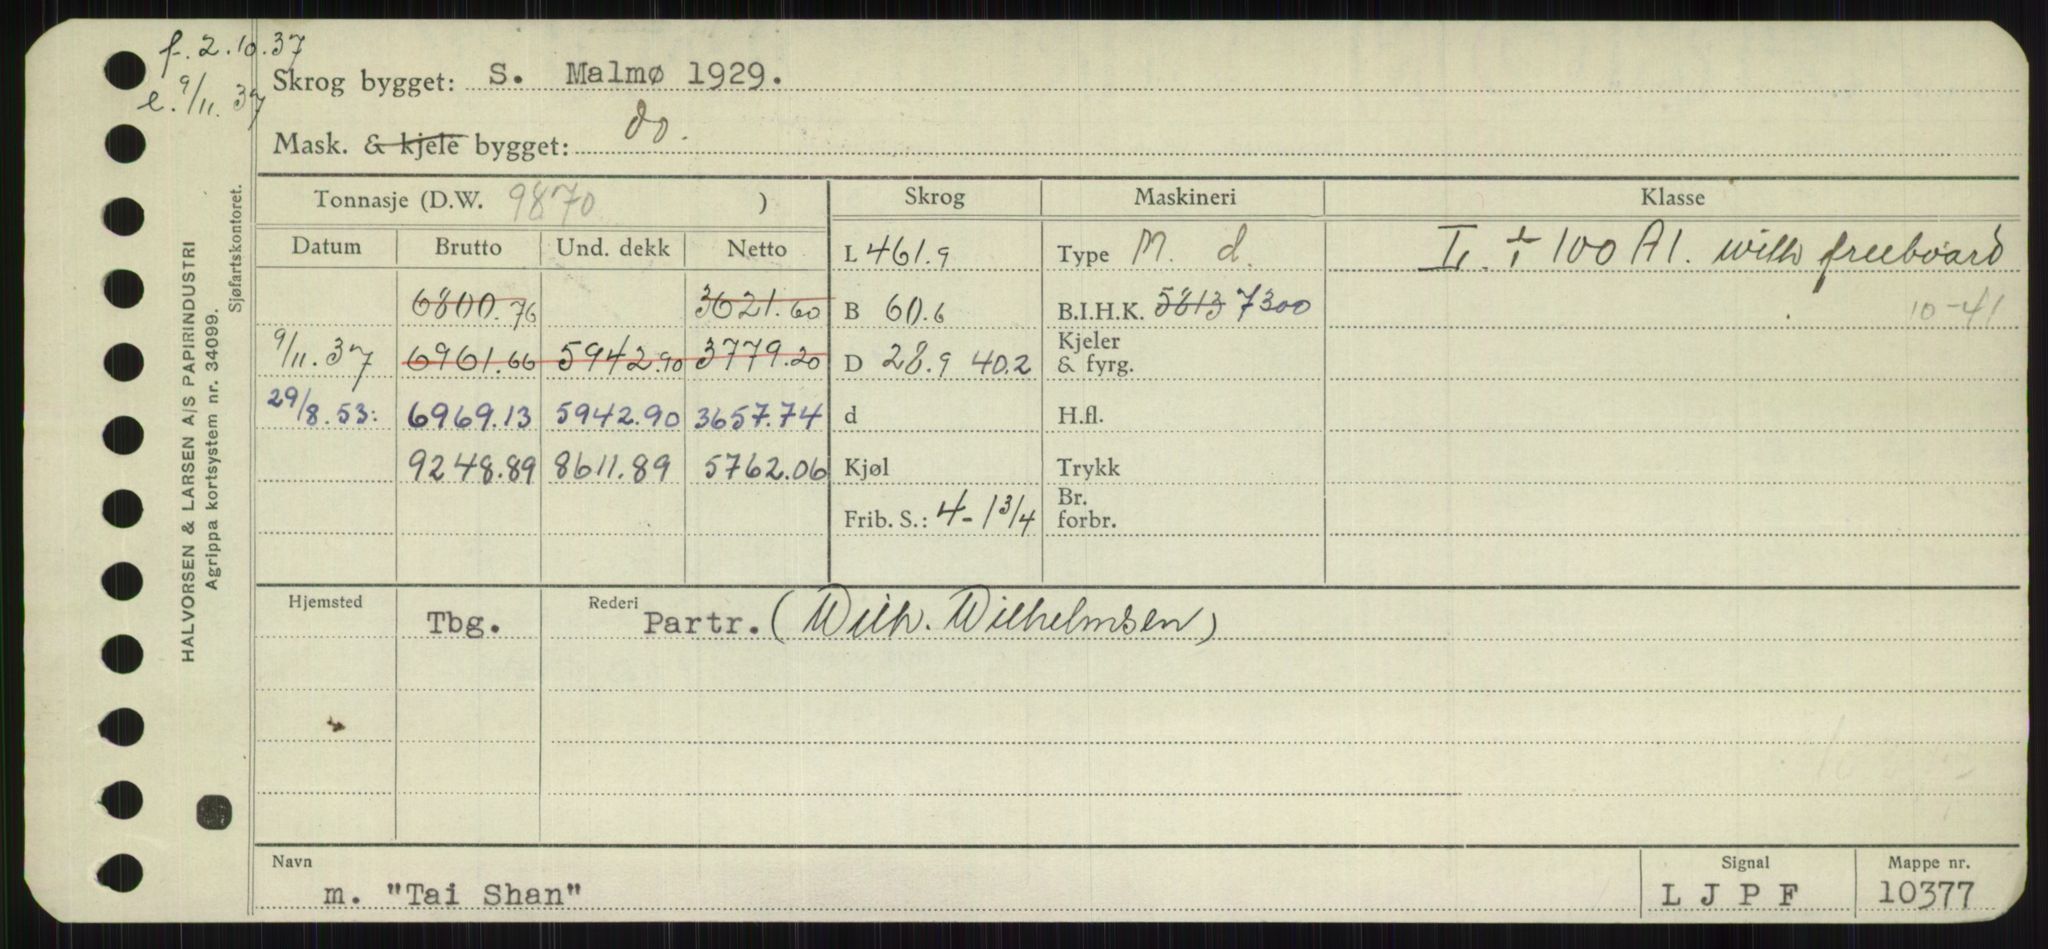 f. 2.10.37
e. 9/11. 37
Skrog bygget: S. Malmø 1929.
Mask. & kjele bygget: do.
HALVORSEN & LARSEN A/S PAPIRINDUSTRI
Agrippa kortsystem nr. 34099.
Sjøfartskontoret.
Tonnasje (D.W. 9870 ) Skrog Maskineri Klasse
Datum Brutto Und. dekk Netto L 461.9 Type M. d. L. + 100 A1. with freeboard
6800.76 3621.60 B 60.6 B.I.H.K. 5813 7300 10-41
9/11. 37 6961.66 5942.90 3779.20 D 28.9 40.2 Kjeler & fyrg.
29/8.53: 6969.13 5942.90 3657.74 d H.fl.
9248.89 8611.89 5762.06 Kjøl Trykk
Frib. S.: 4-1 3/4 Br. forbr.
Hjemsted Tbg. Rederi Partr. (Wilh. Wilhelmsen)
Navn Signal Mappe nr.
m. "Tai Shan" L J P F 10377